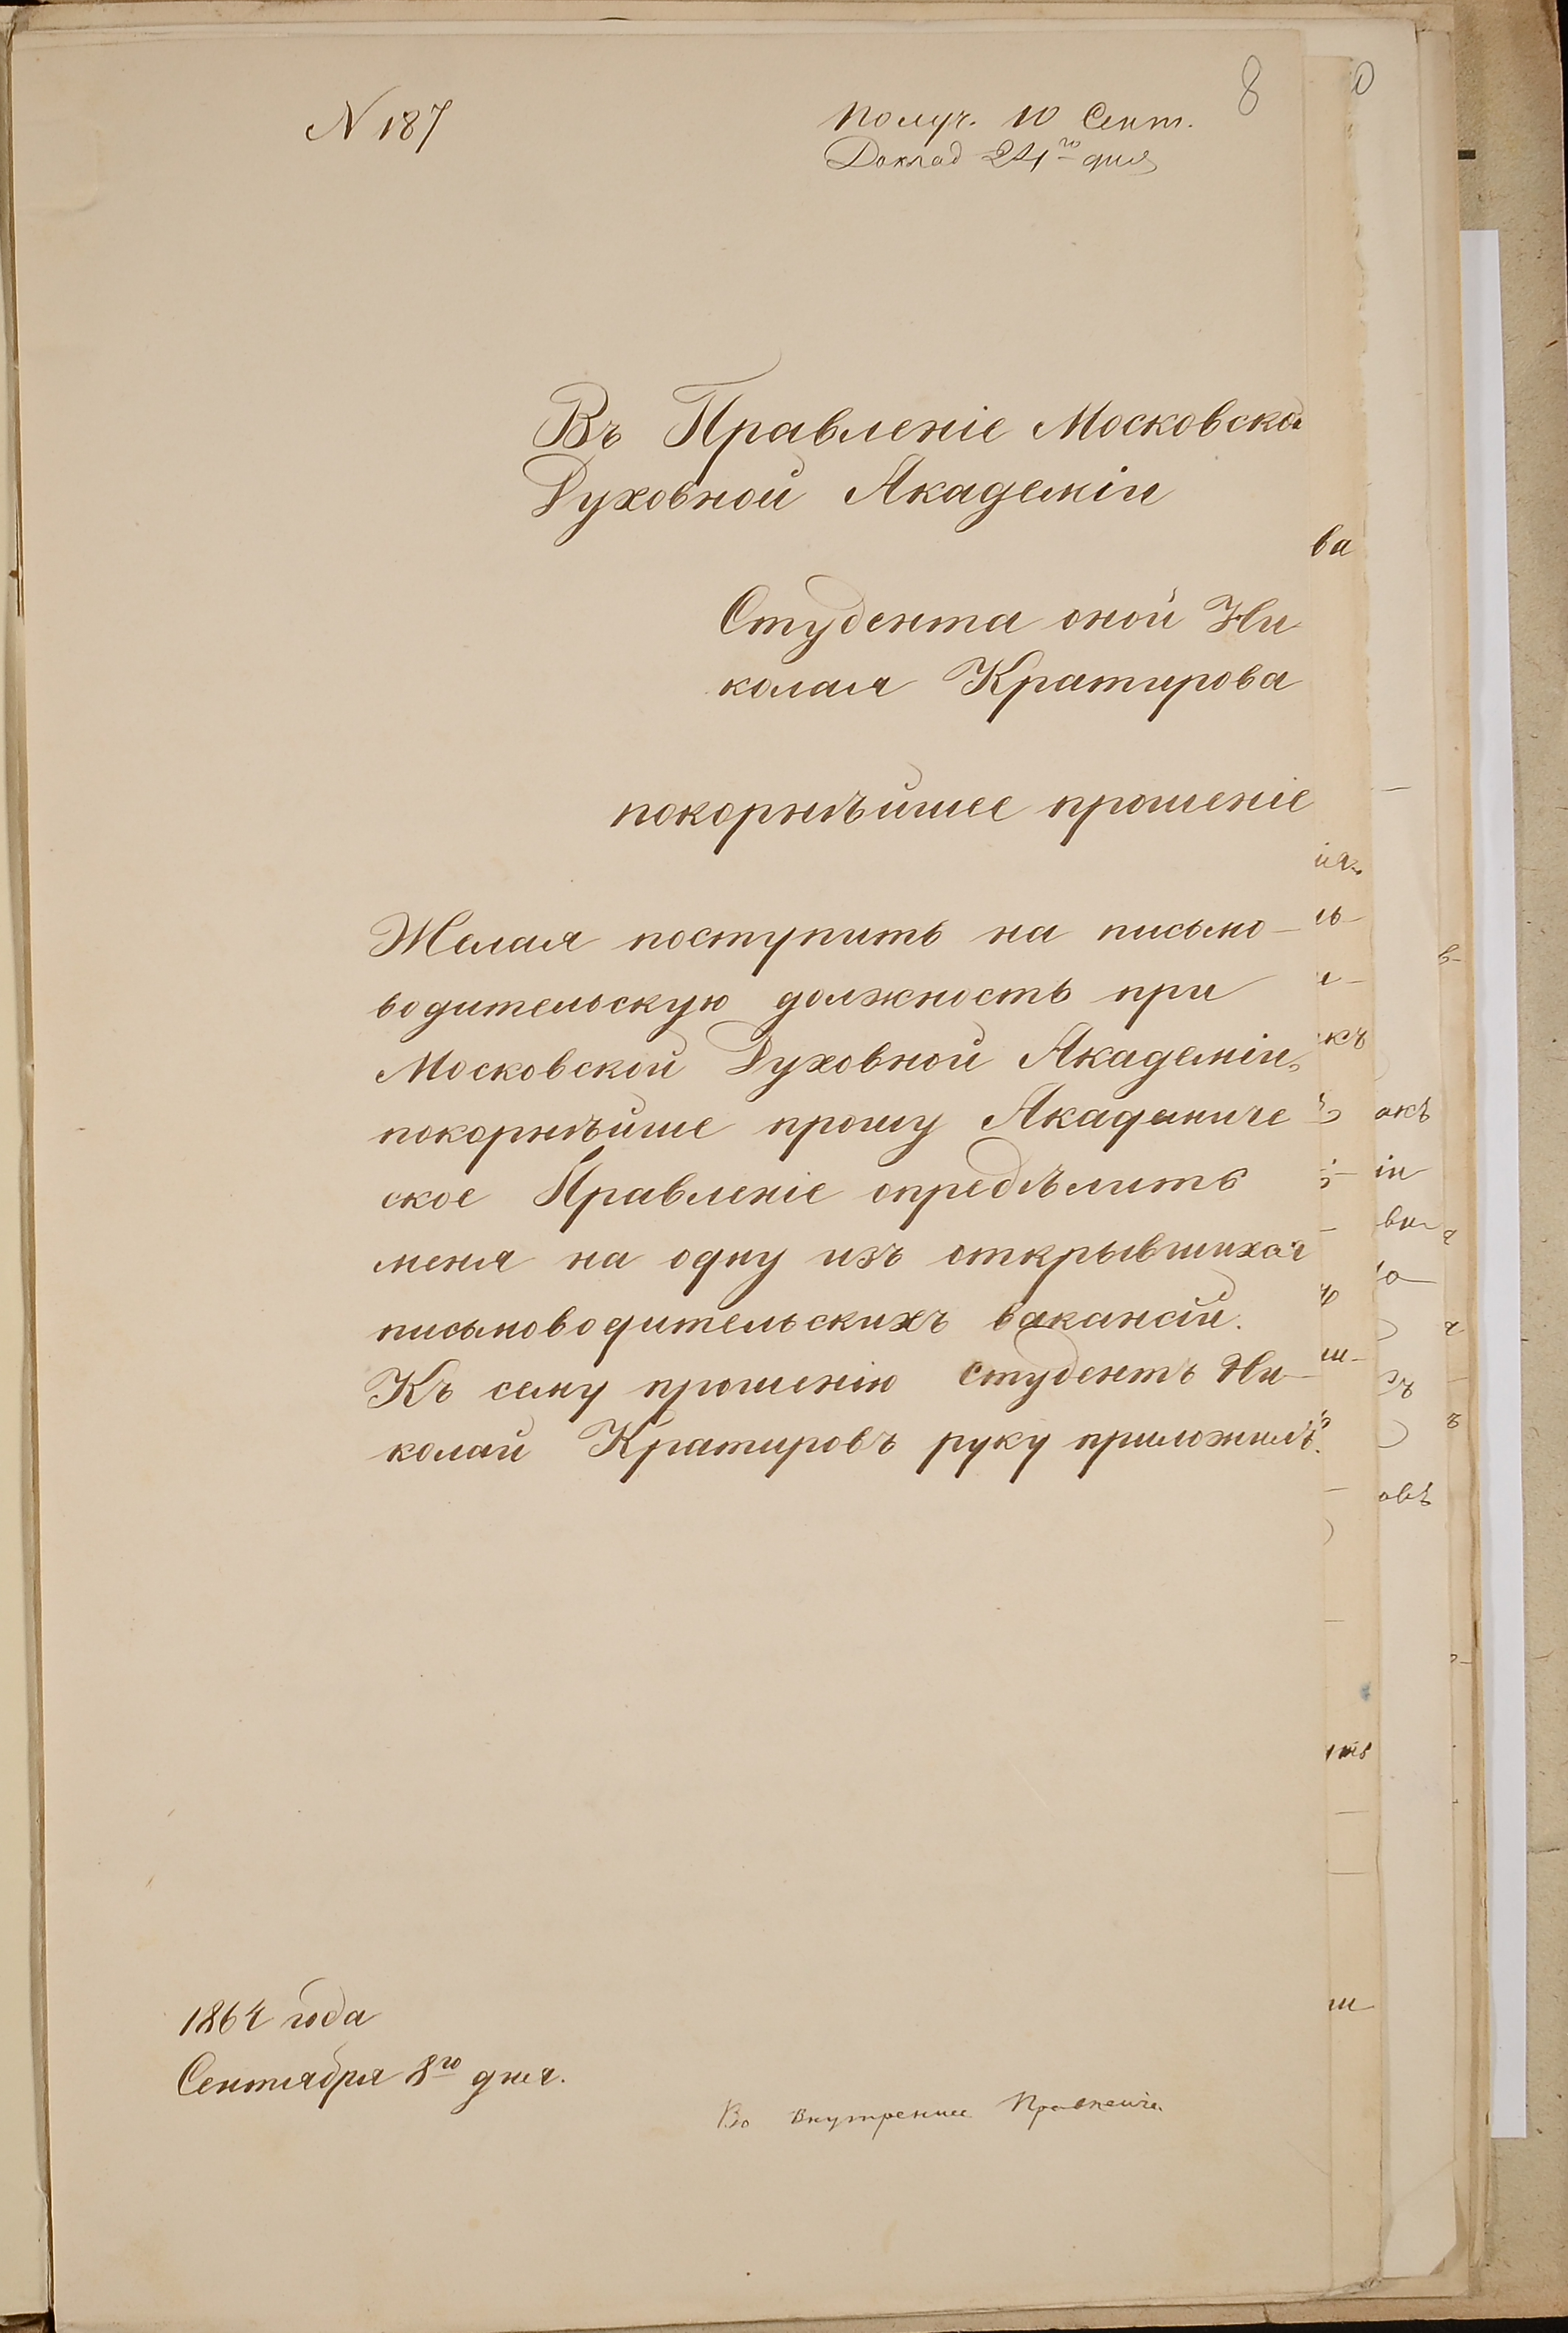 8
N 187
Получ. 10 Сент.
Доклад 24го дня
Въ Правленіе Московской
Духовной Академіи
Студента оной Ни
колая Кратирова
покорнѣйшее прошеніе
Желая поступить на письмо-
водительскую должность при
Московской Духовной Академіи,
покорнѣйше прошу Академиче
ское Правленіе опредѣлить
меня на одну изъ открывшихся
письмоводительскихъ вакансій.
Къ сему прошенію студентъ Ни-
колай Кратировъ руку приложилъ.
1864 года
Сентября 8го дня.
Во внутреннее Правленіе